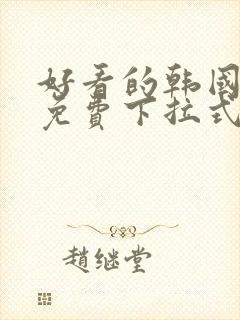 好看的韩国
免費下拉式
趙继堂